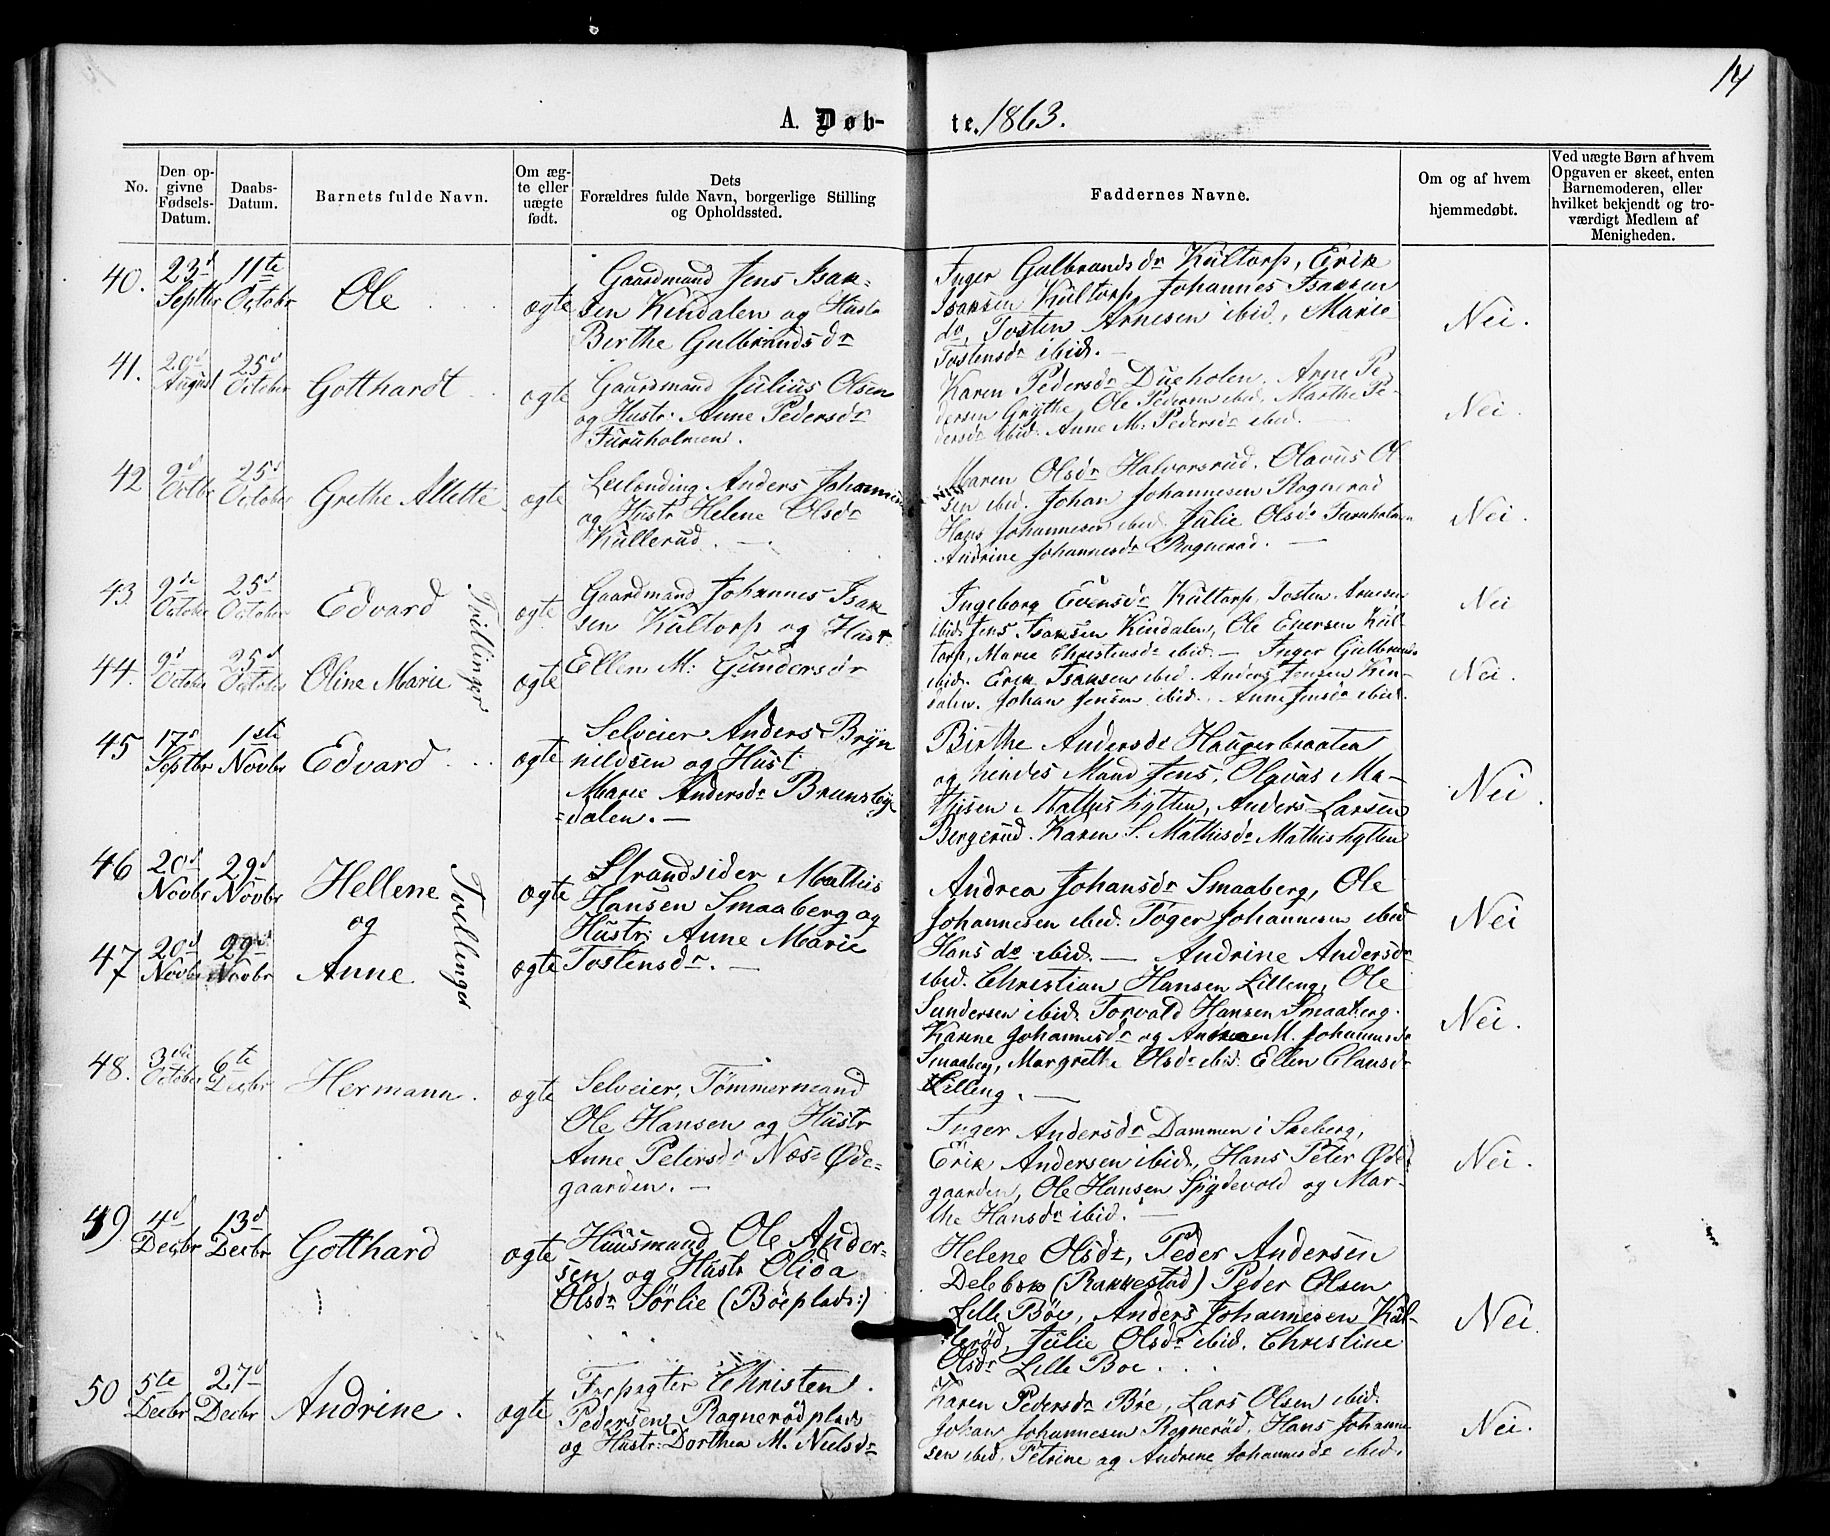 14
A. Døb-te. 1863.
No.
Den opgivne Fødsels-Datum.
Daabs-Datum.
Barnets fulde Navn.
Om ægte eller uægte født.
Dets
Forældres fulde Navn, borgerlige Stilling
og Opholdssted.
Faddernes Navne.
Om og af hvem
hjemmedøbt.
Ved uægte Børn af hvem
Opgaven er skeet, enten
Barnemoderen, eller
hvilket bekjendt og tro-
værdigt Medlem af
Menigheden.
40. 23d Septbr 11te Octobr Ole ægte
Gaardmand Jens Isak-
sen Kindalen og Hustr
Birthe Gulbrandsdr
Inger Gulbrandsdr Kültorp, Erik
Isaksen Kültorp, Johannes Isaksen
do, Tosten Arnesen ibid, Marie
Tostensdr ibid. —
Nei.
41. 20d August 25d October Gotthardt ægte
Gaardmand Julius Olsen
og Hustr: Anne Pedersdr
Furuholmen.
Karen Pedersdr Dueholen, Arne Pe-
dersen Grÿthe, Ole Pedersen ibid, Marthe Pe-
dersdr ibid. Anne M. Pedersdr ibid.
Nei.
42 9d Octbr 25d October Grethe Allette ægte
Leilending Anders Johannesen
og Hustr Helene Olsdr
Küllerud. —
Maren Olsdr Halvorsrud, Olavus Ol
sen ibid. Johan Johannesen Rognerød
Hans Johannesen ibid. Julie Olsdr Furuholmen
Andrine Johannesdr Rognerød. —
Nei.
43. 9de October 25d October Edvard Tvillinger ægte
Gaardmand Johannes Isak
sen Kültorp og Hustr
Ingeborg Evensdr Kültorp, Tosten Arnesen
ibid. Jens Isaksen Kindalen, Ole Enersen Kül-
torp, Marie Christensdr ibid. — Inger Gulbrandsdr
Nei
44. 9d October 25d October Oline Marie ægte
Ellen M: Gundersdr
ibid. Erik Isaksen ibid. Anders Jensen Kin-
dalen. Johan Jensen ibid. Anne Jensdr ibid.
Nei.
45 17d Septbr 1ste Novbr Edvard ægte
Selveier Anders Bryn
nildsen og Hust
Marie Andersdr Brunsby
=dalen. —
Birthe Andersdr Haugerbraaten
og hendes Mand Jens, Olavus Ma-
thisen Mathishytten, Anders Larsen
Bergerud. Karen S. Mathisdr Mathishytten
Nei.
46 20d Novbr 29d Novbr Hellene ægte
og
Tvillinger
Strandsider Mathis
Hansen Smaaberg og
Hustr: Anne Marie
Andrea Johansdr Smaaberg, Ole
Johannesen ibid. Toger Johannesen ibid
Hans do ibid. — Andrine Andersdr
Nei
47 20d Novbr 29d Novbr Anne ægte
Tostensdr. —
ibid. Christian Hansen Lilleng, Ole
Gundersen ibid. Torvald Hansen Smaaberg.
Karine Johannesdr og Andrea M. Johannesdr
Smaaberg, Margrethe Olsdr ibid. Ellen Clausdr
Lilleng. —
Nei.
48. 3die October 6te Decbr Hermann. ægte
Selveier, Tømmermand
Ole Hansen og Hustr
Anne Petersdr Næs Øde-
gaarden. —
Inger Andersdr Dammen i Skeberg,
Erik Andersen ibid, Hans Peter Øde
gaarden, Ole Hansen Spydevold og Mar-
the Hansdr ibid. —
Nei.
49 4d Decbr 13d Decbr Gotthard ægte
Huusmand Ole Ander-
sen og Hustr Olida
Olsdr Sørlie (Böeplads:)
Helene Olsdr, Peder Andersen
Delebæk (Rakkestad) Peder Olsen
Lille Böe, Anders Johannesen Kül-
lerød, Julie Olsdr ibid. Christine
Olsdr Lille Boe.
Nei.
50 5te Decbr 27d Decbr Andrine. ægte
Forpagter Christen
Pedersen, Rognerødplads
og Hustr: Dorthea M. Nielsdr
Karen Pedersdr Böe, Lars Olsen ibid.
Johan Johannesen Rognerød, Hans Johanne
sen ibid, Petrine og Andrine Johannesdr ibid.
Nei.